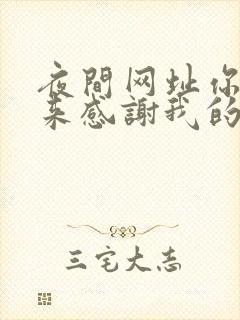 夜間网址你
来感謝我的
三宅大志